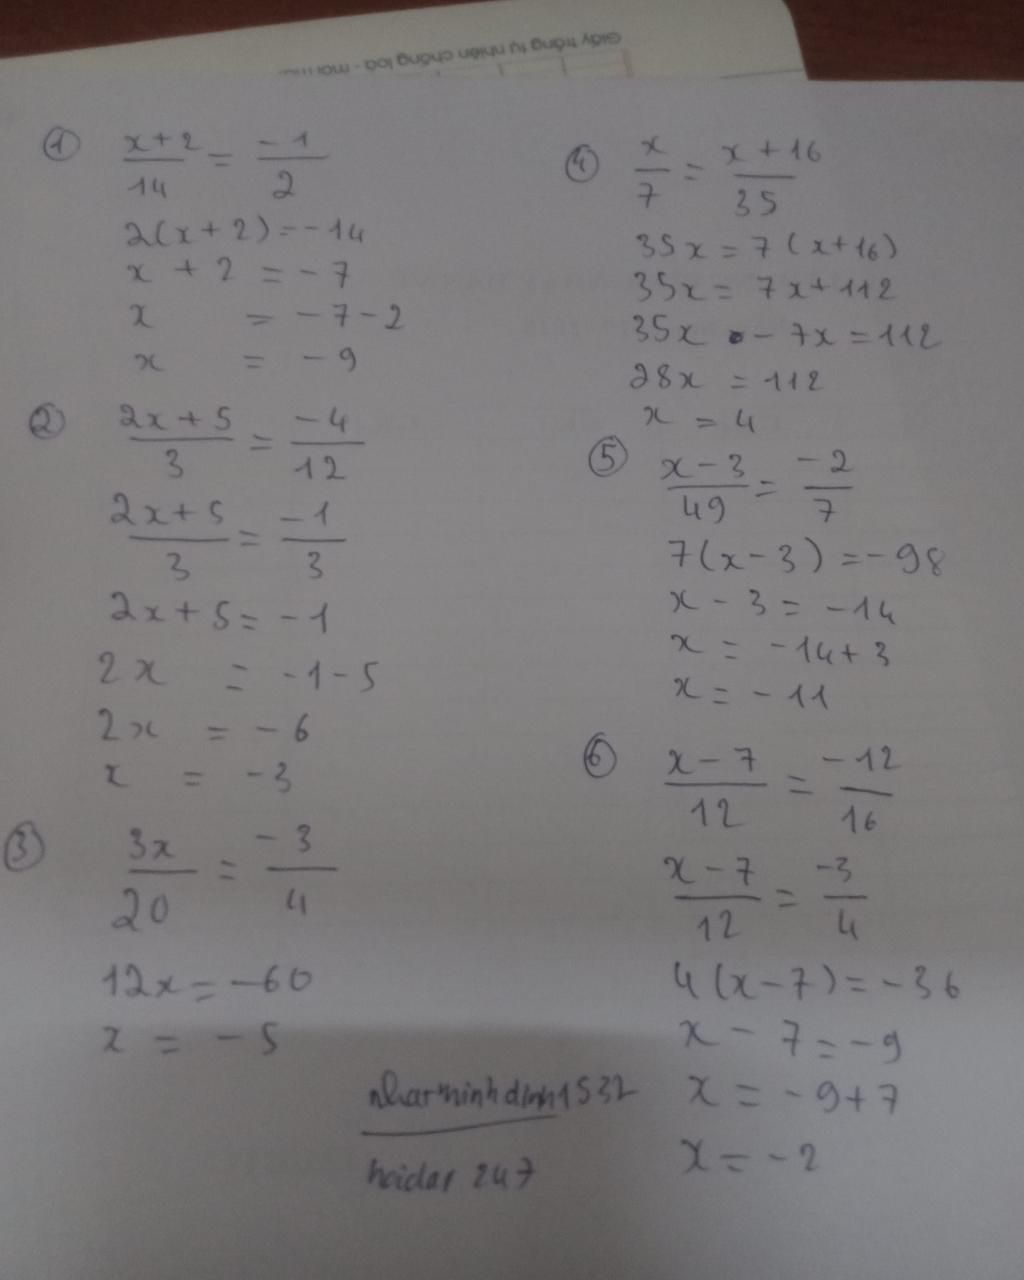 Giấy trắng tự nhiên chống loá - mỏi
① (x+2)/14 = -1/2
2(x+2)=-14
x + 2 = -7
x = -7-2
x = -9
② (2x+5)/3 = -4/12
(2x+5)/3 = -1/3
2x+5= -1
2x = -1-5
2x = -6
x = -3
③ 3x/20 = -3/4
12x = -60
x = -5
④ x/7 = (x+16)/35
35x = 7(x+16)
35x = 7x+112
35x - 7x = 112
28x = 112
x = 4
⑤ (x-3)/49 = -2/7
7(x-3) = -98
x - 3 = -14
x = -14+3
x = -11
⑥ (x-7)/12 = -12/16
(x-7)/12 = -3/4
4(x-7) = -36
x - 7 = -9
x = -9+7
x = -2
247